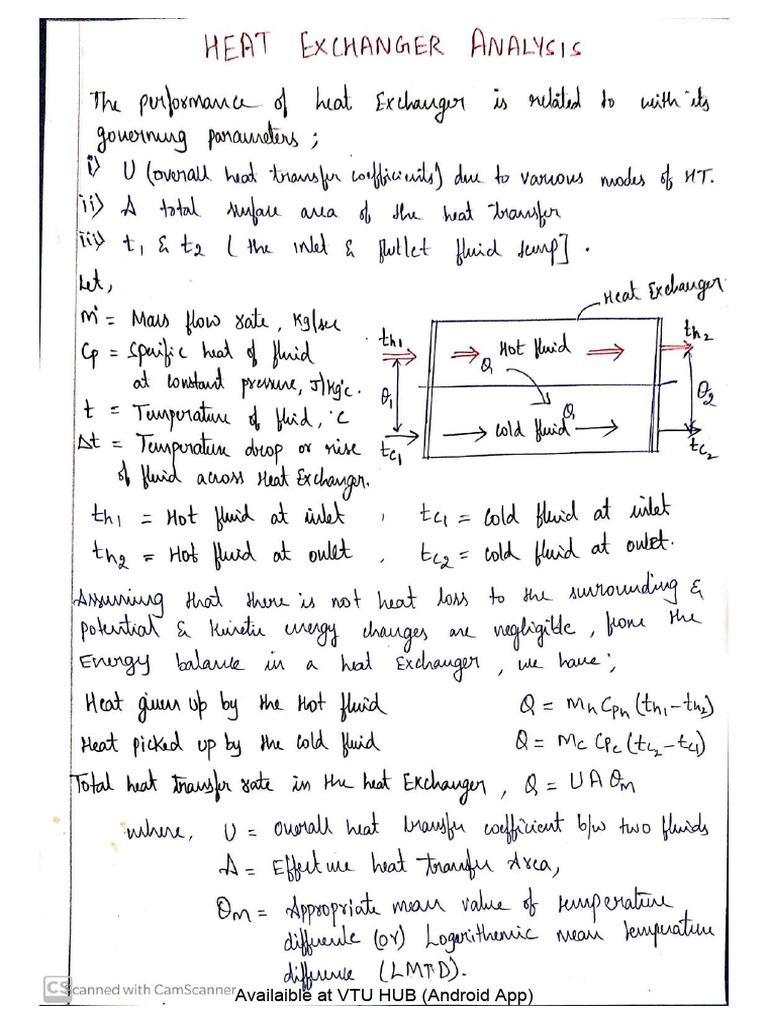 HEAT EXCHANGER ANALYSIS
The performance of heat Exchanger is related to with its
governing parameters ;
i) U (overall heat transfer coefficients) due to various modes of HT.
ii) A total surface area of the heat transfer
iii) t1 & t2 ( the inlet & outlet fluid temp] .
Let,
ṁ = Mass flow rate, Kg/sec
Cp = Specific heat of fluid
at constant pressure, J/Kg°c.
t = Temperature of fluid, °C
Δt = Temperature drop or rise
of fluid across Heat Exchanger.
Heat Exchanger
th1 Hot fluid th2
Q
θ1 Q θ2
tc1 cold fluid tc2
th1 = Hot fluid at inlet , tc1 = cold fluid at inlet
th2 = Hot fluid at oulet , tc2 = cold fluid at oulet.
Assuming that there is not heat loss to the surrounding &
potential & kinetic energy changes are negligible, from the
Energy balance in a heat Exchanger, we have ;
Heat given up by the Hot fluid Q = Mh Cph (th1 - th2)
Heat picked up by the cold fluid Q = Mc Cpc (tc2 - tc1)
Total heat transfer rate in the heat Exchanger, Q = UA θm
where, U = Overall heat transfer coefficient b/w two fluids
A = Effective heat transfer Area,
θm = Appropriate mean value of temperature
difference (or) Logerithemic mean temperature
difference (LMTD).
CS canned with CamScanner
Availaible at VTU HUB (Android App)